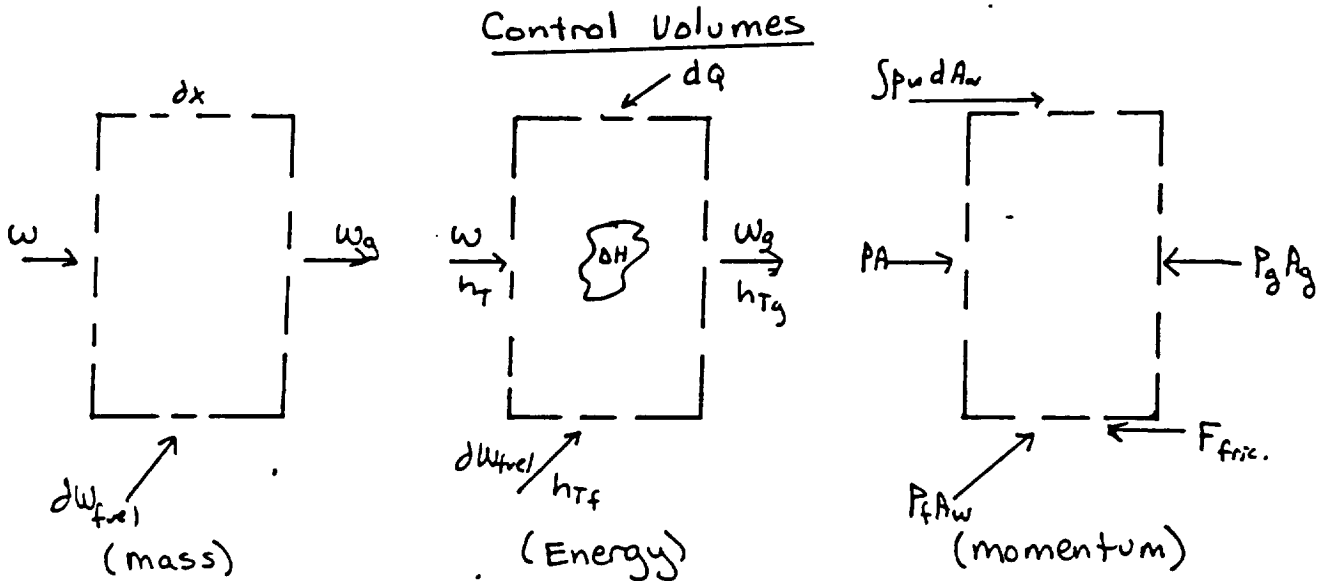 Control Volumes
dx
w
wg
dWfuel
(mass)
dQ
w
hT
ΔH
wg
hTg
dWfuel
hTf
(Energy)
∫pw dAw
PA
PgAg
Ffric.
PfAw
(momentum)